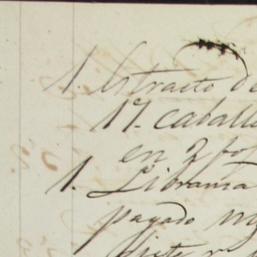 1. Estracto de
17. caball
en 2 fo
1. Libranza
pagado